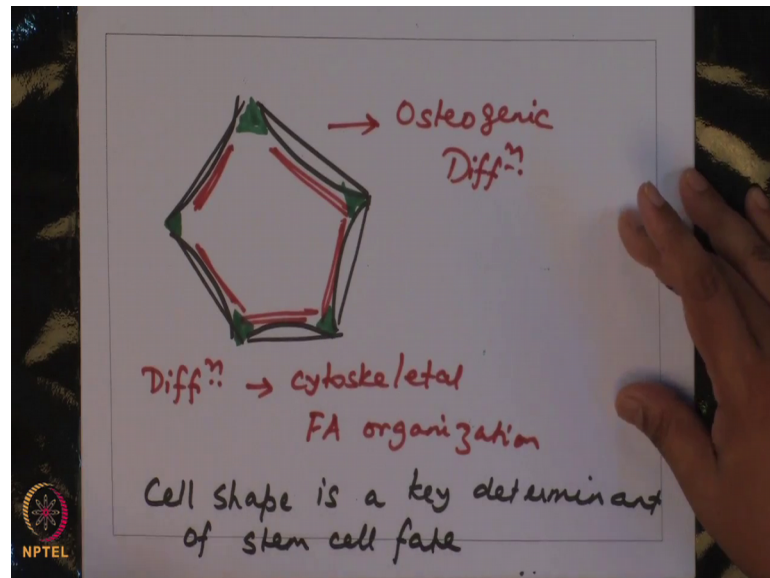 → Osteogenic
Diffⁿ.
Diffⁿ. → cytoskeletal
FA organization
Cell shape is a key determinant
of stem cell fate
NPTEL